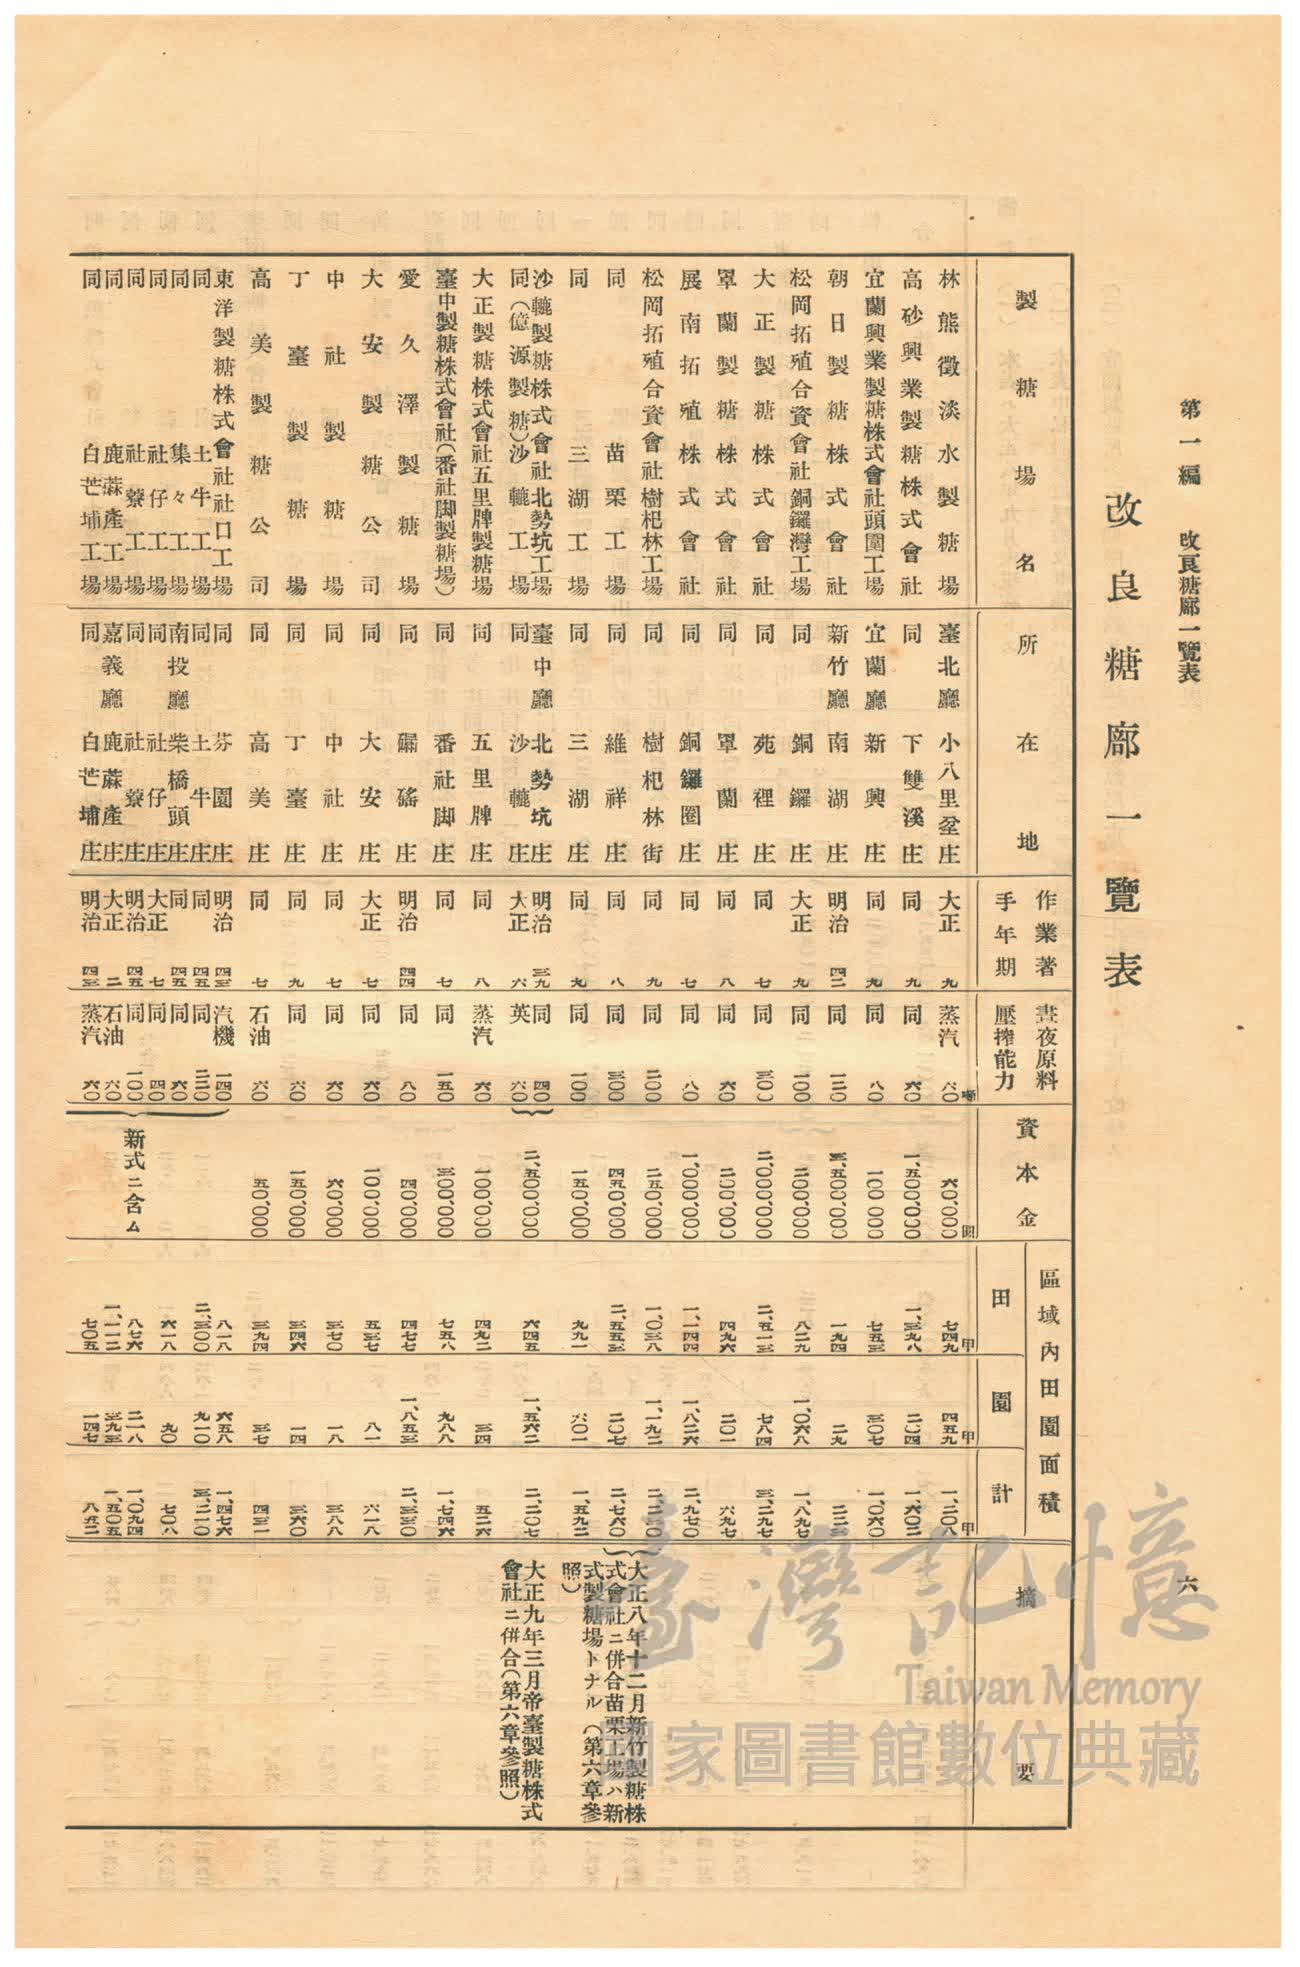 第一編　改良糖廍一覽表　六
改良糖廍一覽表
製糖場名　所在地　作業著手年期　晝夜原料壓搾能力　資本金　區域內田園面積　田　園　計　摘要
林熊徵淡水製糖場　臺北廳　小八里坌庄　大正　九　蒸汽　六〇噸　六〇、〇〇〇圓　七四九甲　四五九甲　一、二〇八甲
高砂興業製糖株式會社　同　下雙溪庄　同　九　同　六〇　一、五〇〇、〇〇〇　一、三九八　二〇四　一、六〇二
宜蘭興業製糖株式會社頭圍工場　宜蘭廳　新興庄　同　九　同　八〇　一〇〇、〇〇〇　七五三　三〇七　一、〇六〇
朝日製糖株式會社　新竹廳　南湖庄　明治　四二　同　一二〇　三、五〇〇、〇〇〇　一九四　二九　二二三
松岡拓殖合資會社銅鑼灣工場　同　銅鑼庄　大正　九　同　一〇〇　二〇〇、〇〇〇　八二九　一、〇六八　一、八九七
大正製糖株式會社　同　苑裡庄　同　七　同　三〇〇　二、〇〇〇、〇〇〇　二、五一三　七八四　三、二九七
罩蘭製糖株式會社　同　罩蘭庄　同　七　同　六〇　二〇〇、〇〇〇　四九六　二〇一　六九七
展南拓殖株式會社　同　銅鑼圈庄　同　七　同　八〇　一、〇〇〇、〇〇〇　一、一四四　一、八二六　二、九七〇
松岡拓殖合資會社樹杞林工場　同　樹杞林街　同　九　同　二〇〇　二五〇、〇〇〇　一、〇三八　一、一九二　二、二三〇
同　苗栗工場　同　維祥庄　同　八　同　三〇〇　四五〇、〇〇〇　二、五五三　二〇七　二、七六〇
同　三湖工場　同　三湖庄　同　九　同　一〇〇　一五〇、〇〇〇　九九一　六〇一　一、五九二
大正八年十二月新竹製糖株
式會社ニ併合苗栗工場ハ新
式製糖場トナル（第六章參
照）
沙轆製糖株式會社北勢坑工場　臺中廳　北勢坑庄　明治　三九　同　四〇
同（億源製糖）沙轆工場　同　沙轆庄　大正　六　英　六〇
二、五〇〇、〇〇〇　六四五　一、五六二　二、二〇七
大正九年三月帝臺製糖株式
會社ニ併合（第六章參照）
大正製糖株式會社五里牌製糖場　同　五里牌庄　同　八　蒸汽　六〇　一〇〇、〇〇〇　四九二　三四　五二六
臺中製糖株式會社（番社脚製糖場）　同　番社脚庄　同　七　同　一五〇　三〇〇、〇〇〇　七五八　九八八　一、七四六
愛久澤製糖場　同　礌磘庄　明治　四四　同　八〇　四〇、〇〇〇　四七七　一、八五三　二、三三〇
大安製糖公司　同　大安庄　大正　七　同　六〇　一〇〇、〇〇〇　五三七　八一　六一八
中社製糖場　同　中社庄　同　七　同　六〇　六〇、〇〇〇　三七〇　一八　三八八
丁臺製糖場　同　丁臺庄　同　九　同　六〇　一五〇、〇〇〇　三四六　一四　三六〇
高美製糖公司　同　高美庄　同　七　石油　六〇　五〇、〇〇〇　三九四　三七　四三一
東洋製糖株式會社社口工場　同　芬園庄　明治　四三　汽機　一四〇　八一八　六五八　一、四七六
同　土牛工場　同　土牛庄　同　四五　同　二二〇　二、三〇〇　九一〇　三、二一〇
同　集々工場　南投廳　柴橋頭庄　同　四五　同　六〇
同　社仔工場　同　社仔庄　大正　七　同　四〇　六一八　九〇　七〇八
同　社藔工場　同　社藔庄　明治　四五　同　一〇〇　八七六　二一八　一、〇九四
同　鹿蔴產工場　嘉義廳　鹿蔴產庄　大正　二　石油　六〇　一、一一二　三九三　一、五〇五
同　白芒埔工場　同　白芒埔庄　明治　四三　蒸汽　六〇　七〇五　一四七　八五二
新式ニ含ム
臺灣記憶
Taiwan Memory
國家圖書館數位典藏